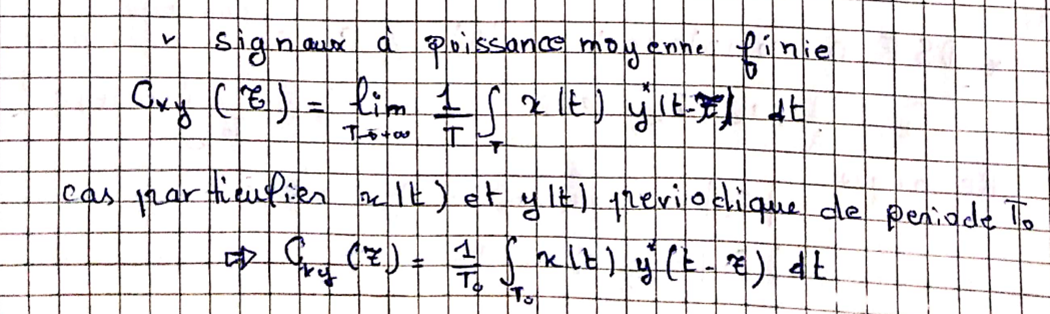 ✓ signaux à puissance moyenne finie
Cxy (τ) = lim T→+∞ 1/T ∫T x(t) y*(t-τ) dt
cas particulier x(t) et y(t) periodique de periode T₀
⇒ Cxy (τ) = 1/T₀ ∫T₀ x(t) y*(t-τ) dt